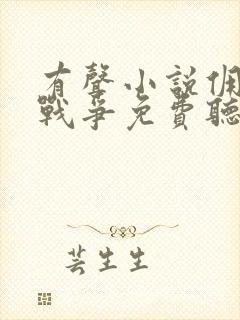 有聲小說佣
戰爭免費聽
芸生生